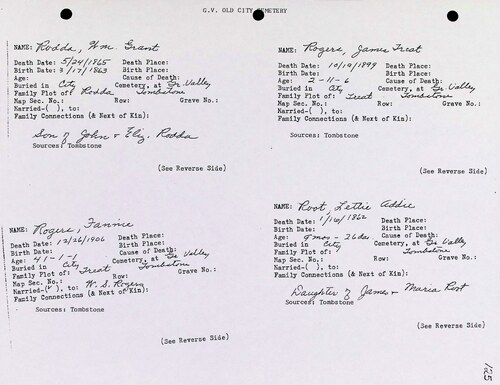 G.V. OLD CITY CEMETERY
NAME: Rodda, Wm. Grant
Death Date: 5/24/1865 Death Place:
Birth Date: 3/17/1863 Birth Place:
Age: Cause of Death:
Buried in City Cemetery, at Gr. Valley
Family Plot of: Rodda Tombstone
Map Sec. No.: Row: Grave No.:
Married-( ), to:
Family Connections (& Next of Kin):
Son of John & Eliz. Rodda
Sources: Tombstone
(See Reverse Side)
NAME: Rogers, James Treat
Death Date: 10/19/1899 Death Place:
Birth Date: Birth Place:
Age: 2-11-6 Cause of Death:
Buried in City Cemetery, at Gr. Valley
Family Plot of: Treat Tombstone
Map Sec. No.: Row: Grave No.:
Married-( ), to:
Family Connections (& Next of Kin):
Sources: Tombstone
(See Reverse Side)
NAME: Rogers, Fannie
Death Date: 12/26/1906 Death Place:
Birth Date: Birth Place:
Age: 41-1-1 Cause of Death:
Buried in City Cemetery, at Gr. Valley
Family Plot of: Treat Tombstone
Map Sec. No.: Row: Grave No.:
Married-(✓), to: W. S. Rogers
Family Connections (& Next of Kin):
Sources: Tombstone
(See Reverse Side)
NAME: Root, Lettie Addie
Death Date: 1/10/1862 Death Place:
Birth Date: Birth Place:
Age: 8 mos - 26 da Cause of Death:
Buried in City Cemetery, at Gr. Valley
Family Plot of: Tombstone
Map Sec. No.: Row: Grave No.:
Married-( ), to:
Family Connections (& Next of Kin):
Daughter of James & Maria Root
Sources: Tombstone
(See Reverse Side)
185